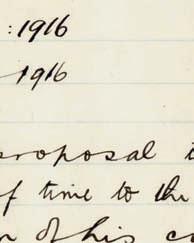 : 1916
1916
proposal
of time to the
of his